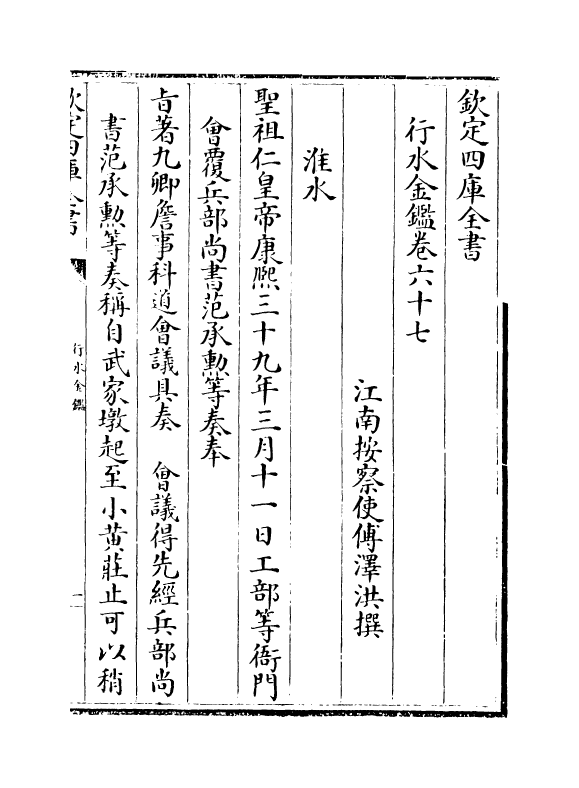 欽定四庫全書
行水金鑑卷六十七
江南按察使傅澤洪撰
淮水
聖祖仁皇帝康熙三十九年三月十一日工部等衙門
會覆兵部尚書范承勲等奏奉
旨著九卿詹事科道會議具奏　會議得先經兵部尚
書范承勲等奏稱自武家墩起至小黄莊止可以稍
欽定四庫全書
行水金鑑